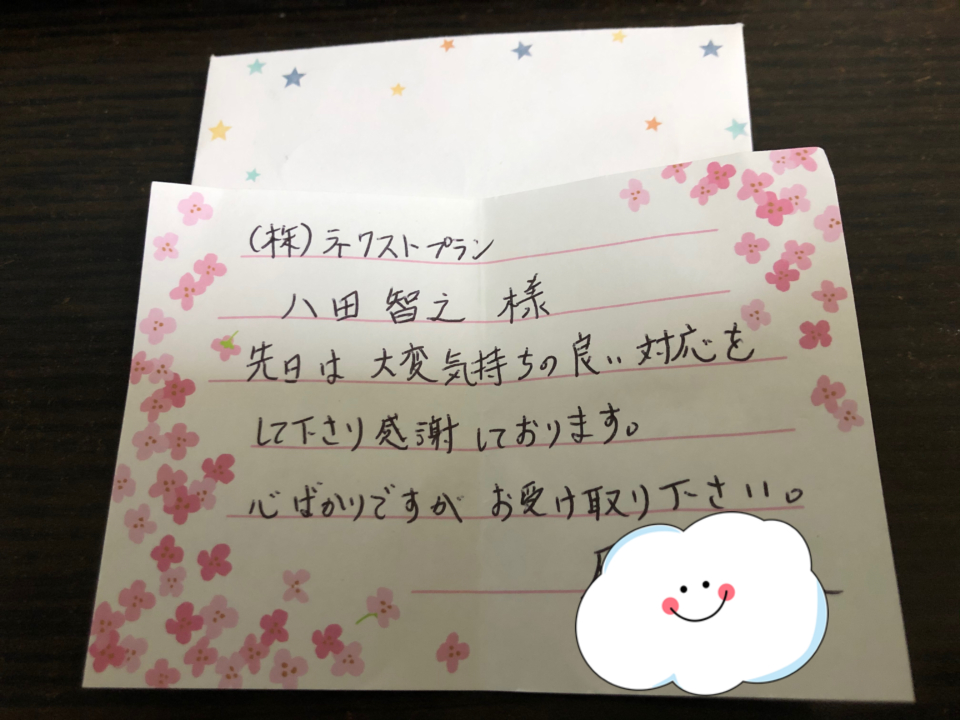 (株)ネクストプラン
八田 智之 様
先日は 大変気持ちの良い対応を
して下さり感謝しております。
心ばかりですが お受け取り下さい。